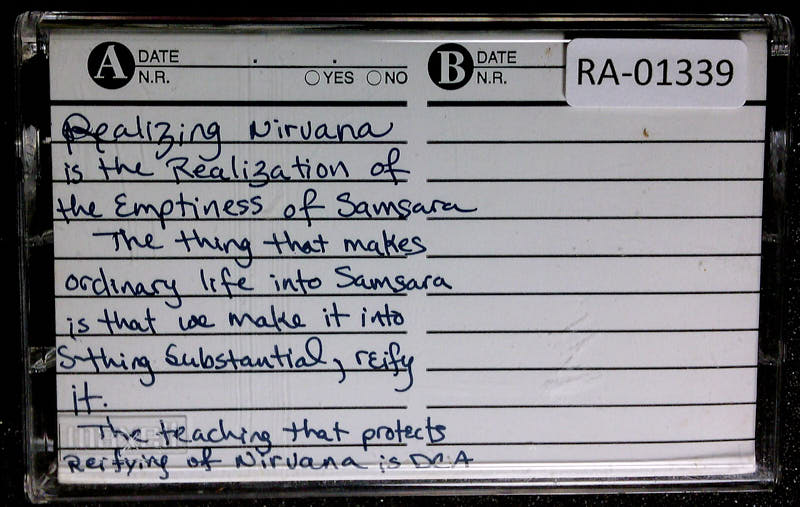 A DATE
N.R. YES NO
B DATE
N.R.
RA-01339
Realizing Nirvana
is the Realization of
the Emptiness of Samsara
The thing that makes
ordinary life into Samsara
is that we make it into
S-thing Substantial, reify
it.
maxell
The teaching that protects
Reifying of Nirvana is DCA